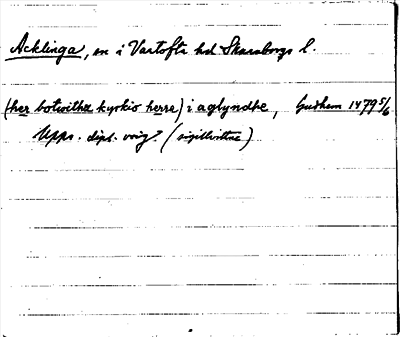 Acklinga, sn i Vartofta hd Skaraborgs l.
(her botwithæ kyrkio herra) i aglyndhe, Gudhem 1479 5/6
Upps. dipl. orig. (sigillvittne)